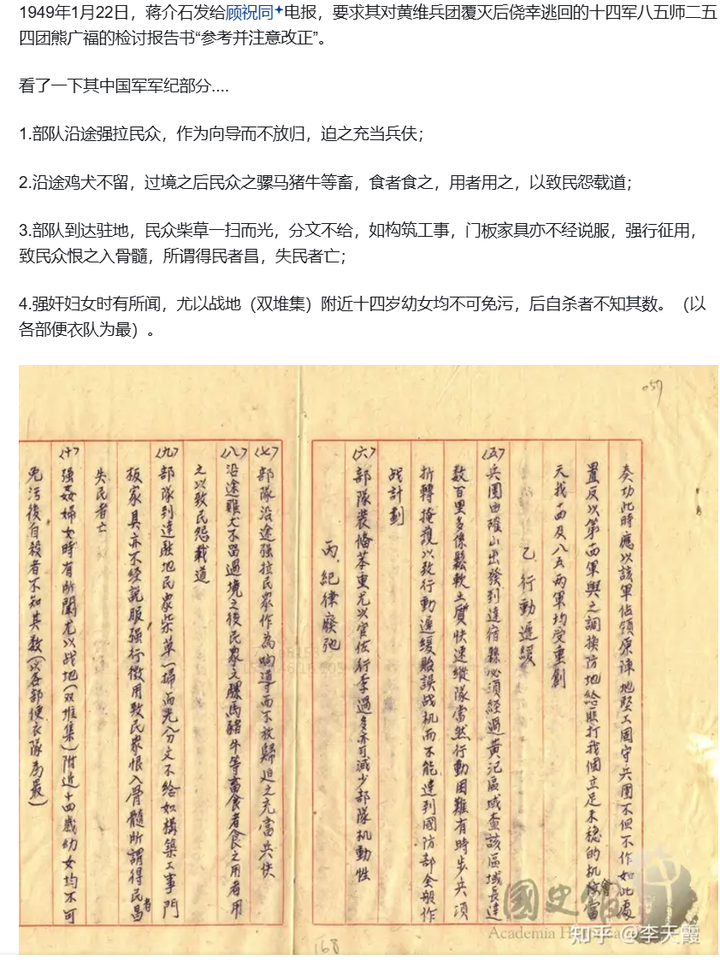 1949年1月22日，蒋介石发给顾祝同电报，要求其对黄维兵团覆灭后侥幸逃回的十四军八五师二五
四团熊广福的检讨报告书“参考并注意改正”。
看了一下其中国军军纪部分....
1.部队沿途强拉民众，作为向导而不放归，迫之充当兵伕；
2.沿途鸡犬不留，过境之后民众之骡马猪牛等畜，食者食之，用者用之，以致民怨载道；
3.部队到达驻地，民众柴草一扫而光，分文不给，如构筑工事，门板家具亦不经说服，强行征用，
致民众恨之入骨髓，所谓得民者昌，失民者亡；
4.强奸妇女时有所闻，尤以战地（双堆集）附近十四岁幼女均不可免污，后自杀者不知其数。（以
各部便衣队为最）。
057
奏功此時應以該軍佔領原陣地堅工固守兵團不但不作如此處
置反以第一四軍與之調換防地給匪打我個立足未穩的机會當
天我一四及八五兩軍均受重創
乙、行動遲緩
(五)兵團由確山出發到達宿縣必須經過黃汜區域查該區域長達
數百里多係鬆軟土質快速縱隊當然行動困難有時步兵須
折轉掩護以致行動遲緩貽誤战机而不能達到國防部全般作
战計劃
(六)部隊裝備笨重尤以官佐行李過多亦可減少部隊机動性
丙、紀律廢弛
(七)部隊沿途强拉民眾作為响導而不放歸迫之充當兵伕
(八)沿途雞犬不留過境之後民眾之騾馬豬牛等畜食者食之用者用
之以致民怨载道
(九)部隊到達駐地民眾柴草一掃而光分文不給如構築工事門
板家具亦不經說服強行徵用致民眾恨入骨髓所謂得民者昌
失民者亡
(十)強姦婦女時有所聞尤以战地(双堆集)附近十四歲幼女均不可
免污後自殺者不知其數(以各部便衣隊為最)
168
國史館
Academia Historica
知乎 @李天霞